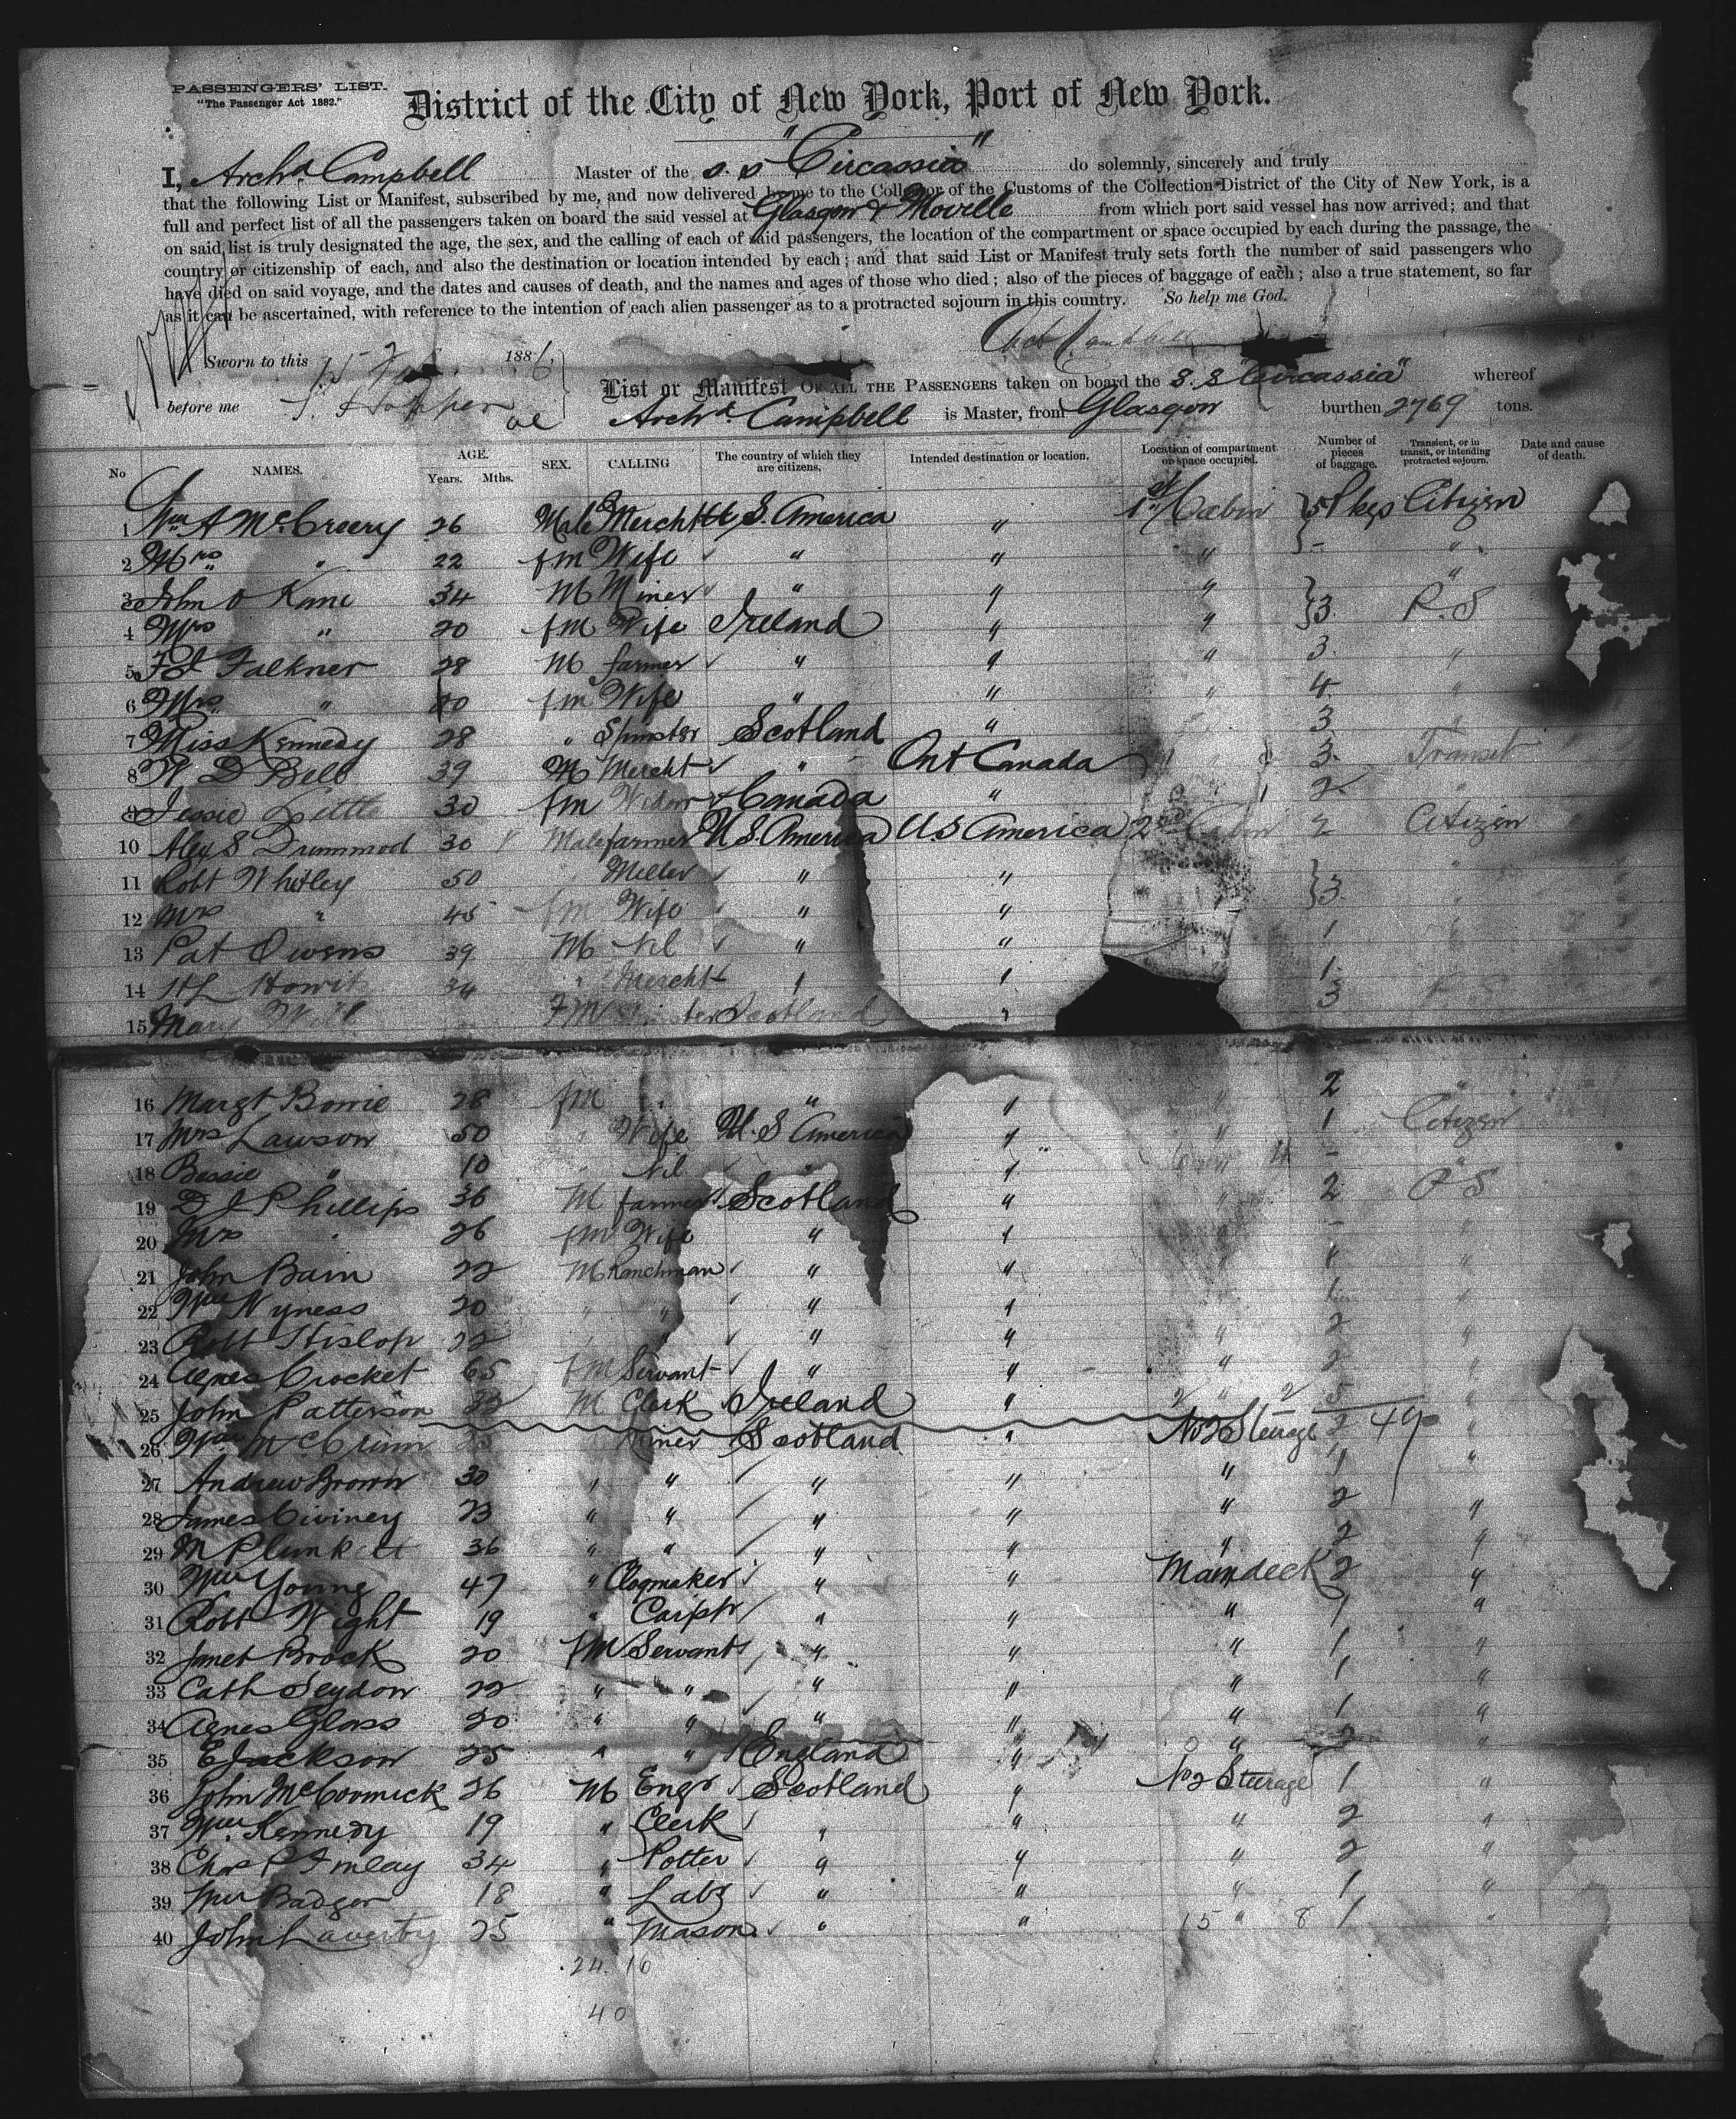 PASSENGERS' LIST.
"The Passenger Act 1882."
District of the City of New York, Port of New York.
I, Archd Campbell Master of the s.s "Circassia" do solemnly, sincerely and truly
that the following List or Manifest, subscribed by me, and now delivered by me to the Collector of the Customs of the Collection District of the City of New York, is a
full and perfect list of all the passengers taken on board the said vessel at Glasgow & Moville from which port said vessel has now arrived; and that
on said list is truly designated the age, the sex, and the calling of each of said passengers, the location of the compartment or space occupied by each during the passage, the
country or citizenship of each, and also the destination or location intended by each; and that said List or Manifest truly sets forth the number of said passengers who
have died on said voyage, and the dates and causes of death, and the names and ages of those who died; also of the pieces of baggage of each; also a true statement, so far
as it can be ascertained, with reference to the intention of each alien passenger as to a protracted sojourn in this country. So help me God.
Archd Campbell
Sworn to this 15 1886,
before me
List or Manifest OF ALL THE PASSENGERS taken on board the S.S "Circassia" whereof
Archd Campbell is Master, from Glasgow burthen 2769 tons.
No NAMES. AGE. Years. Mths. SEX. CALLING The country of which they are citizens. Intended destination or location. Location of compartment or space occupied. Number of pieces of baggage. Transient, or in transit, or intending protracted sojourn. Date and cause of death.
1 Wm A McCreery 26 Male Mercht U S. America " 1st Cabin 5 Pkgs Citizen
2 Mrs " 22 fm Wife " " " - "
3 John O Kane 34 M Miner " " " "
4 Mrs " 20 fm Wife Ireland " " 3. P.S
5 Falkner 28 M farmer " " " 3. "
6 Mrs " fm Wife " " " 4 "
7 Miss Kennedy 28 " Spinster Scotland " 3 "
8 W D Bell 39 M Mercht " Ont Canada 3. Transit
9 Jessie Little 30 fm Widow Canada " 2 "
10 Alex S Drummod 30 Male farmer U S. America U.S America 2nd Cabin 2 Citizen
11 Robt Whitley 50 Miller " " "
12 Mrs " 45 fm Wife " " 3. "
13 Pat Owens 39 M Nil " " 1
14 H L Howit 34 " Mercht " " 1
15 Mary FM Scotland " 3
16 Margt Bowie 28 fm " " " " 2 "
17 Mrs Lawson 50 " Wife U.S America " " 1 Citizen
18 Bessie " 10 Nil " - "
19 D J Phillips 36 M farmer Scotland " " 2 P S
20 Mrs " 26 fm Wife " " " - "
21 John Bain 22 M Ranchman " " " 1 "
22 Wm Nyness 20 " " " " 1 "
23 Robt Hislop 22 " " " " " 2 "
24 Agnes Crocket 65 fm Servant " " " 2 "
25 John Patterson M Clerk Ireland " 2 " 2 5 "
26 Wm McCrinn Miner Scotland " No 2 Steerage 2 49 "
27 Andrew Brown 30 " " " " " 1 "
28 James Civiney 23 " " " " " 2 "
29 M Plunkett 36 " " " " " 2 "
30 Wm Young 47 " Clogmaker " " Maindeck 2 "
31 Robt Wight 19 " Carptr " " " 1 "
32 Janet Brock 20 fm Servant " " " 1 "
33 Cath Seydon 22 " " " " " 1 "
34 Agnes Glass 20 " " " " " 1 "
35 E Jackson 25 " " England " " 2 "
36 John McCormick 26 M Engr Scotland " No 2 Steerage 1 "
37 Wm Kennedy 19 " Clerk " " " 2 "
38 Chas P Finlay 34 " Potter " " " 2 "
39 Wm Badger 18 " Labr " " " 1 "
40 John Laverty 25 " Mason " " 15 " 8 1 "
24. 16
40